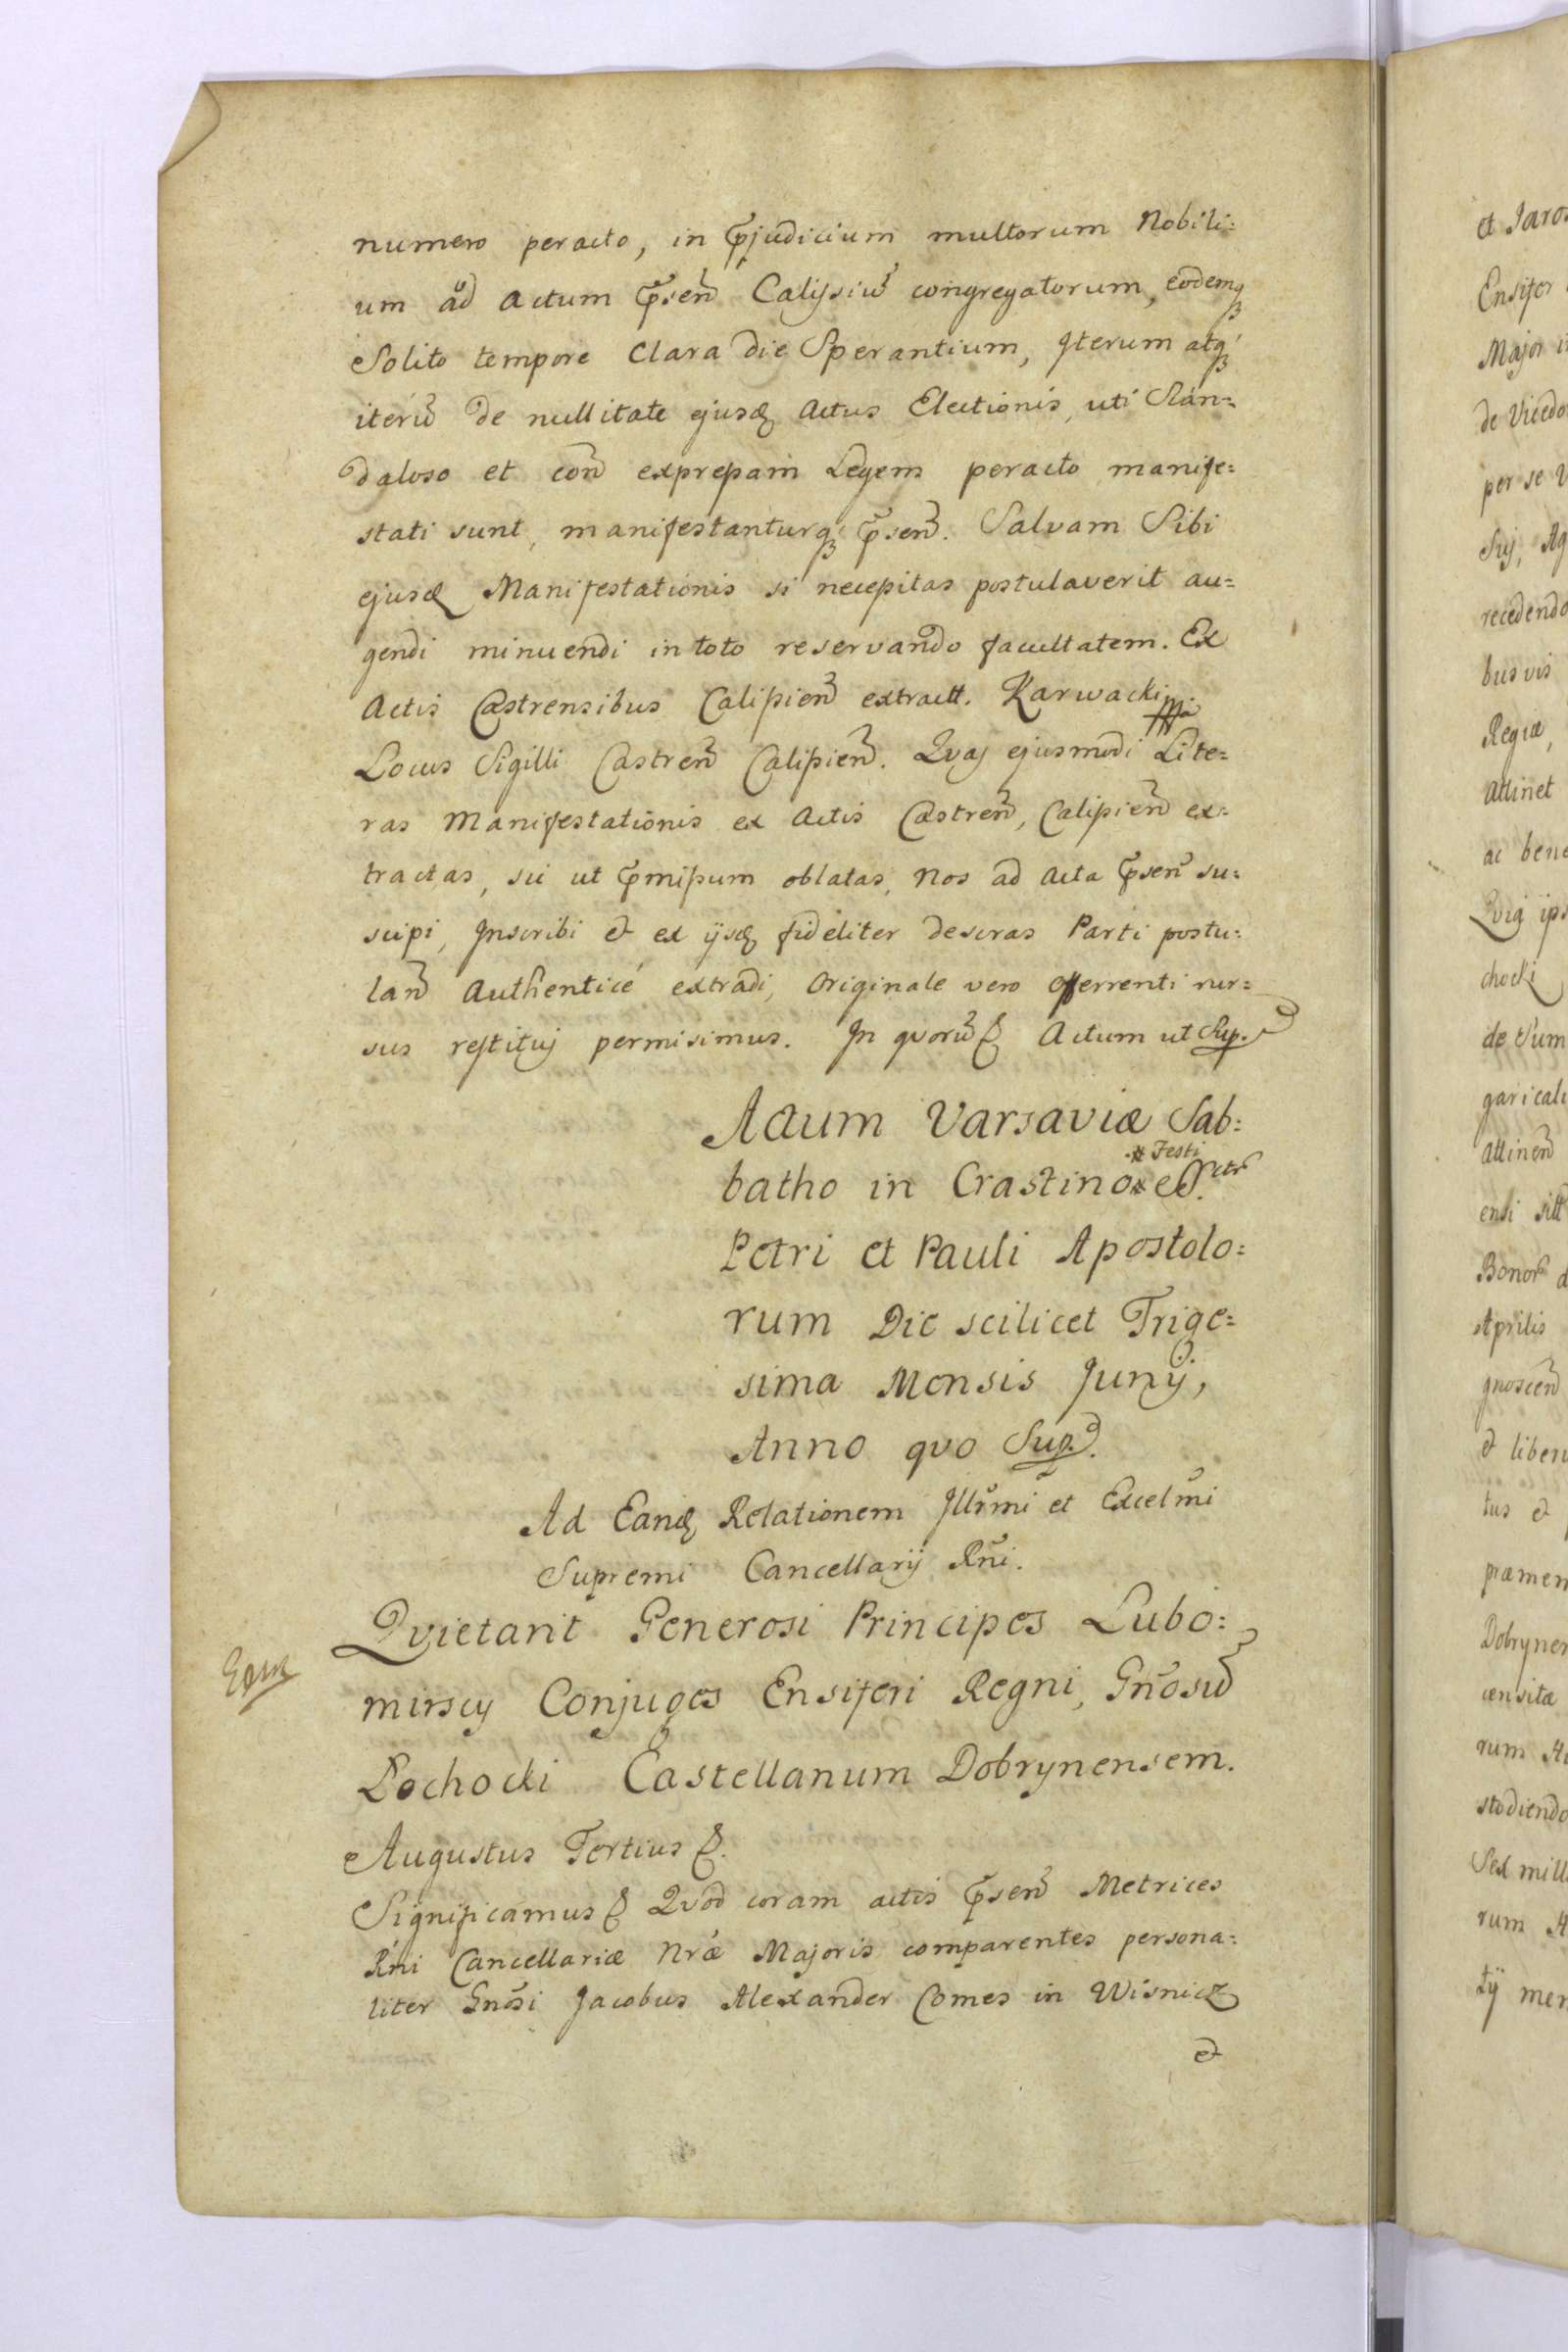 numero peracto, in p̃judicium multorum Nobili=
um ad actum p̃senẽ Calissiũ congregatorum, eodemq́
Solito tempore Clara die Sperantium, Iterum atq́
iterũ de nullitate ejusq actus Electionis, uti Skan=
daloso et conẽ expressam Legem peracto manife=
stati sunt, manifestanturq́ p̃senẽ. Salvam Sibi
ejusq Manifestationis si necessitas postulaverit au=
gendi minuendi in toto reservando facultatem. Ex
Actis Castrensibus Calissienẽ extractt. Karwacki mp.
Locus Sigilli Castrenẽ Calissienẽ. Qvas ejusmodi Lite=
ras Manifestationis ex Actis Castrenẽ, Calissienẽ ex=
tractas, sic ut p̃missum oblatas, Nos ad acta p̃senẽ su=
scipi, Inscribi et ex ijsq fideliter descras Parti postu=
lanẽ Authenticé extradi, Originale vero offerrenti rur=
sus restitui permisimus. In qvorũ &. Actum ut Sup.
Actum Varsaviæ Sab=
batho in Crastino * Festi SS. ctr
Petri et Pauli Apostolo=
rum Die scilicet Trige=
sima Mensis Junij,
Anno qvo Sup.
Ad Eanq Relationem Illr̃mi et Excelm̃i
Supremi Cancellarij Rñi.
Qvietant Generosi Principes Lubo=
mirscy Conjuges Ensiferi Regni, Gñosũ
Pochocki Castellanum Dobrynensem.
Augustus Tertius &.
Significamus & Qvod coram actis p̃senẽ Metrices
Rñi Cancellariæ Nræ Majoris comparentes persona=
liter Gnõsi Jacobus Alexander Comes in Wisnicz
et
et Jaros
Ensifer
Major in
de Vicedo
per se
Sij, Aq
recedendo
bus vis
Regiæ,
attinet
ac bene
Qvia ips
chocki
de Sum
garicali
attinenẽ
ensi sitt
Bonor̃
Aprilis
gnoscenẽ
et liberu
tus et
præmen
Dobrynen
censita
rum
stodiendo
Sex mill
rum
tij mer